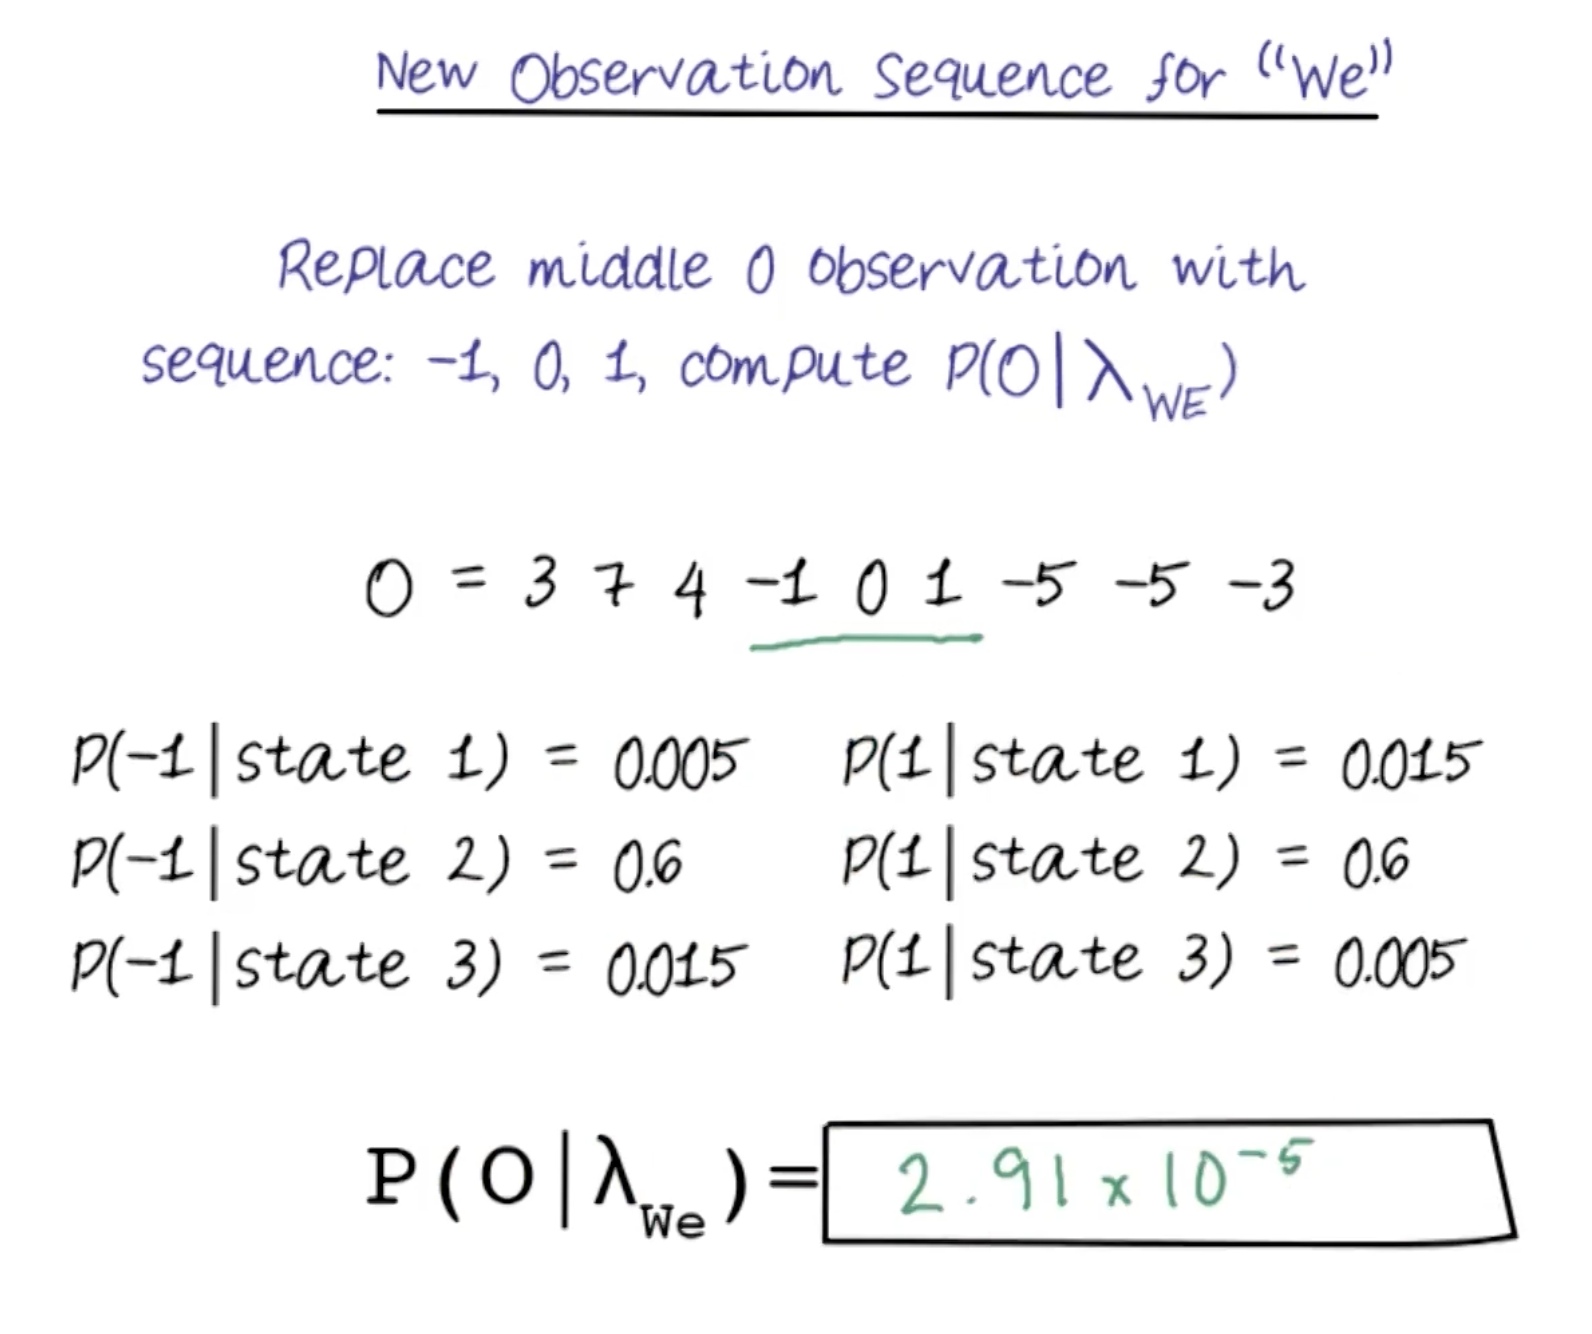 New Observation Sequence for "We"
Replace middle 0 observation with
sequence: -1, 0, 1, compute P(O|λ WE)
O = 3 7 4 -1 0 1 -5 -5 -3
P(-1|state 1) = 0.005 P(1|state 1) = 0.015
P(-1|state 2) = 0.6 P(1|state 2) = 0.6
P(-1|state 3) = 0.015 P(1|state 3) = 0.005
P(O|λ We)= 2.91 x 10⁻⁵